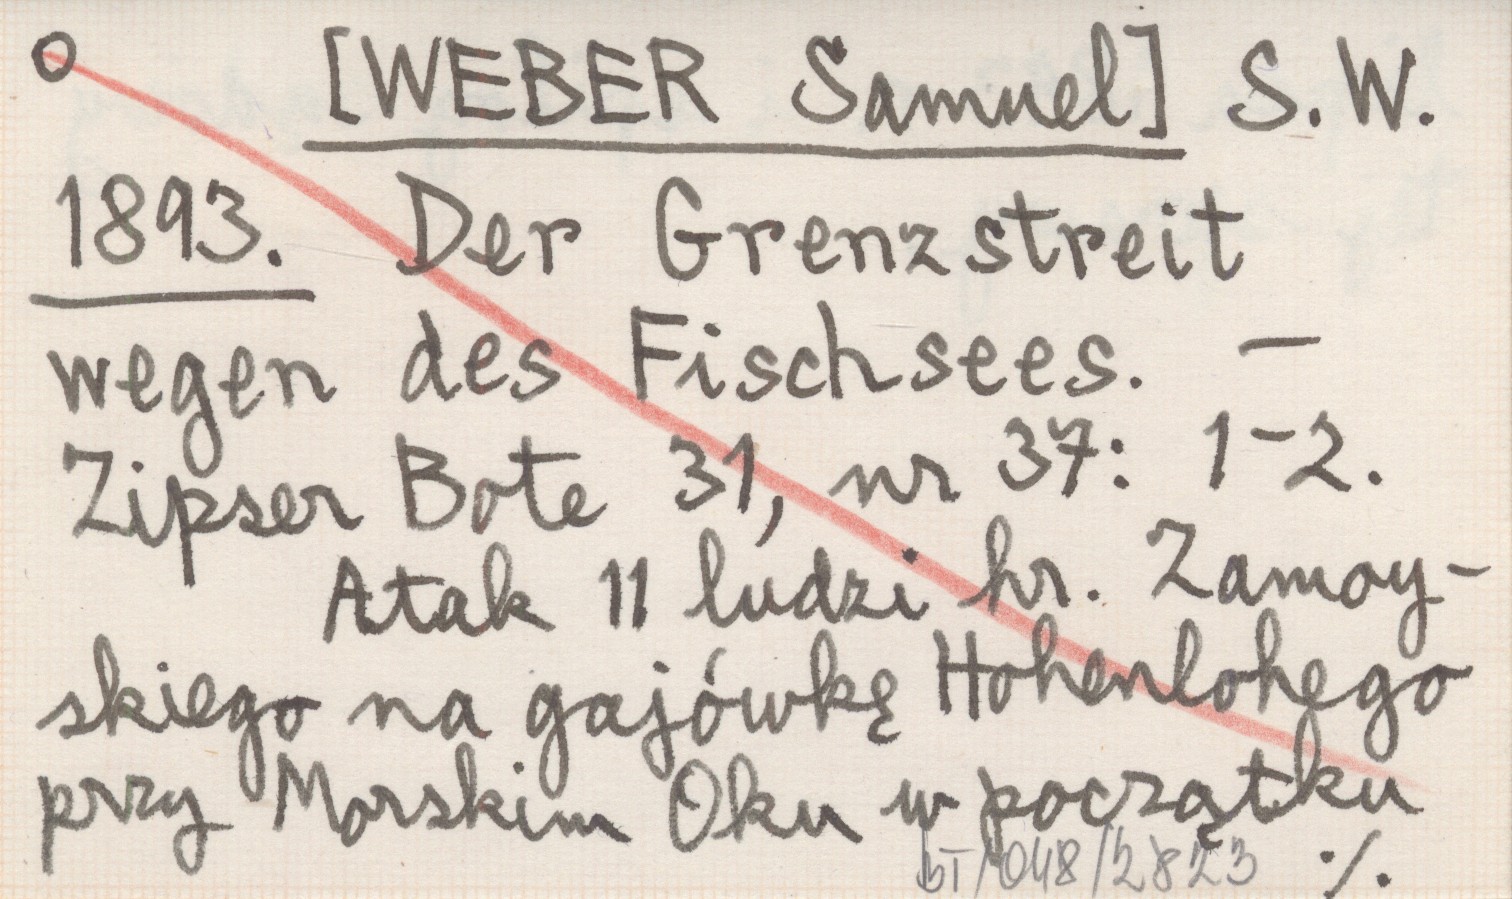 O [WEBER Samuel] S. W.
1893. Der Grenzstreit
wegen des Fischsees. —
Zipser Bote 31, nr 37: 1-2.
Atak 11 ludzi hr. Zamoy-
skiego na gajówkę Hohenlohego
przy Morskim Oku w początku
BT/048/2823 ./.